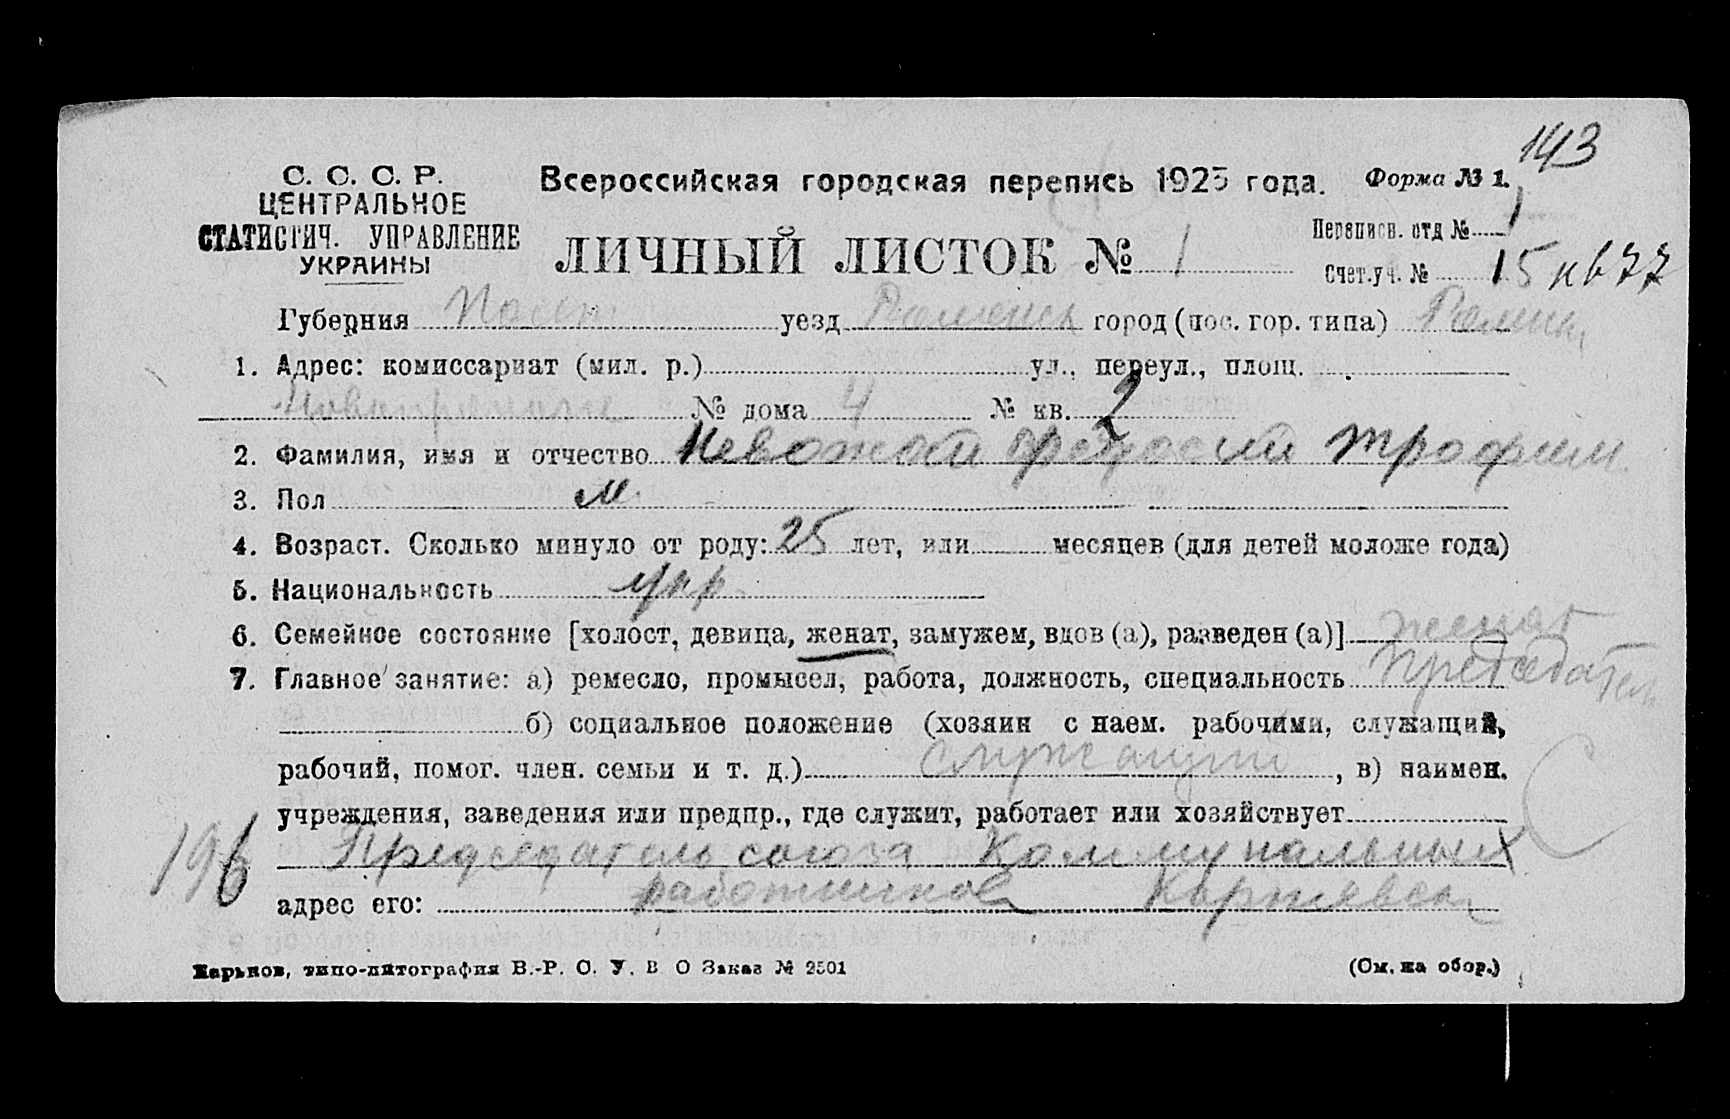 143
С. С. С. Р.
ЦЕНТРАЛЬНОЕ
СТАТИСТИЧ. УПРАВЛЕНИЕ
УКРАИНЫ
Всероссийская городская перепись 1923 года. Форма № 1.
ЛИЧНЫЙ ЛИСТОК № 1
Переписн. отд № 1
Счет.уч. № 15 кв 77
Губерния Полт уезд Роменск город (пос. гор. типа) Ромны
1. Адрес: комиссариат (мил. р.) ул., переул., площ.
№ дома 4 № кв. 2
2. Фамилия, имя и отчество Невожай Трофим
3. Пол м.
4. Возраст. Сколько минуло от роду: 25 лет, или месяцев (для детей моложе года)
5. Национальность укр.
6. Семейное состояние [холост, девица, женат, замужем, вдов (а), разведен (а)] женат
7. Главное занятие: а) ремесло, промысел, работа, должность, специальность председатель
б) социальное положение (хозяин с наем. рабочими, служащий,
рабочий, помог. член. семьи и т. д.) служащий, в) наимен.
учреждения, заведения или предпр., где служит, работает или хозяйствует
196 Председатель союза Коммунальных
адрес его: работников
Харьков, типо-литография В.-Р. О. У. В О Заказ № 2501 (См. на обор.)